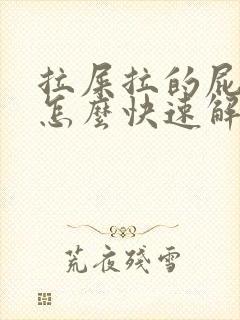 拉屎拉的屁
怎麼快速解
荒夜殘雪